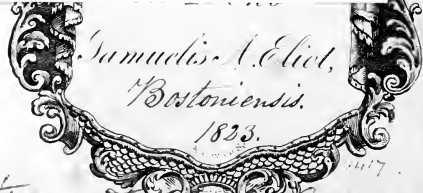 Samuelis A. Eliot,
Bostoniensis.
1823.
1417